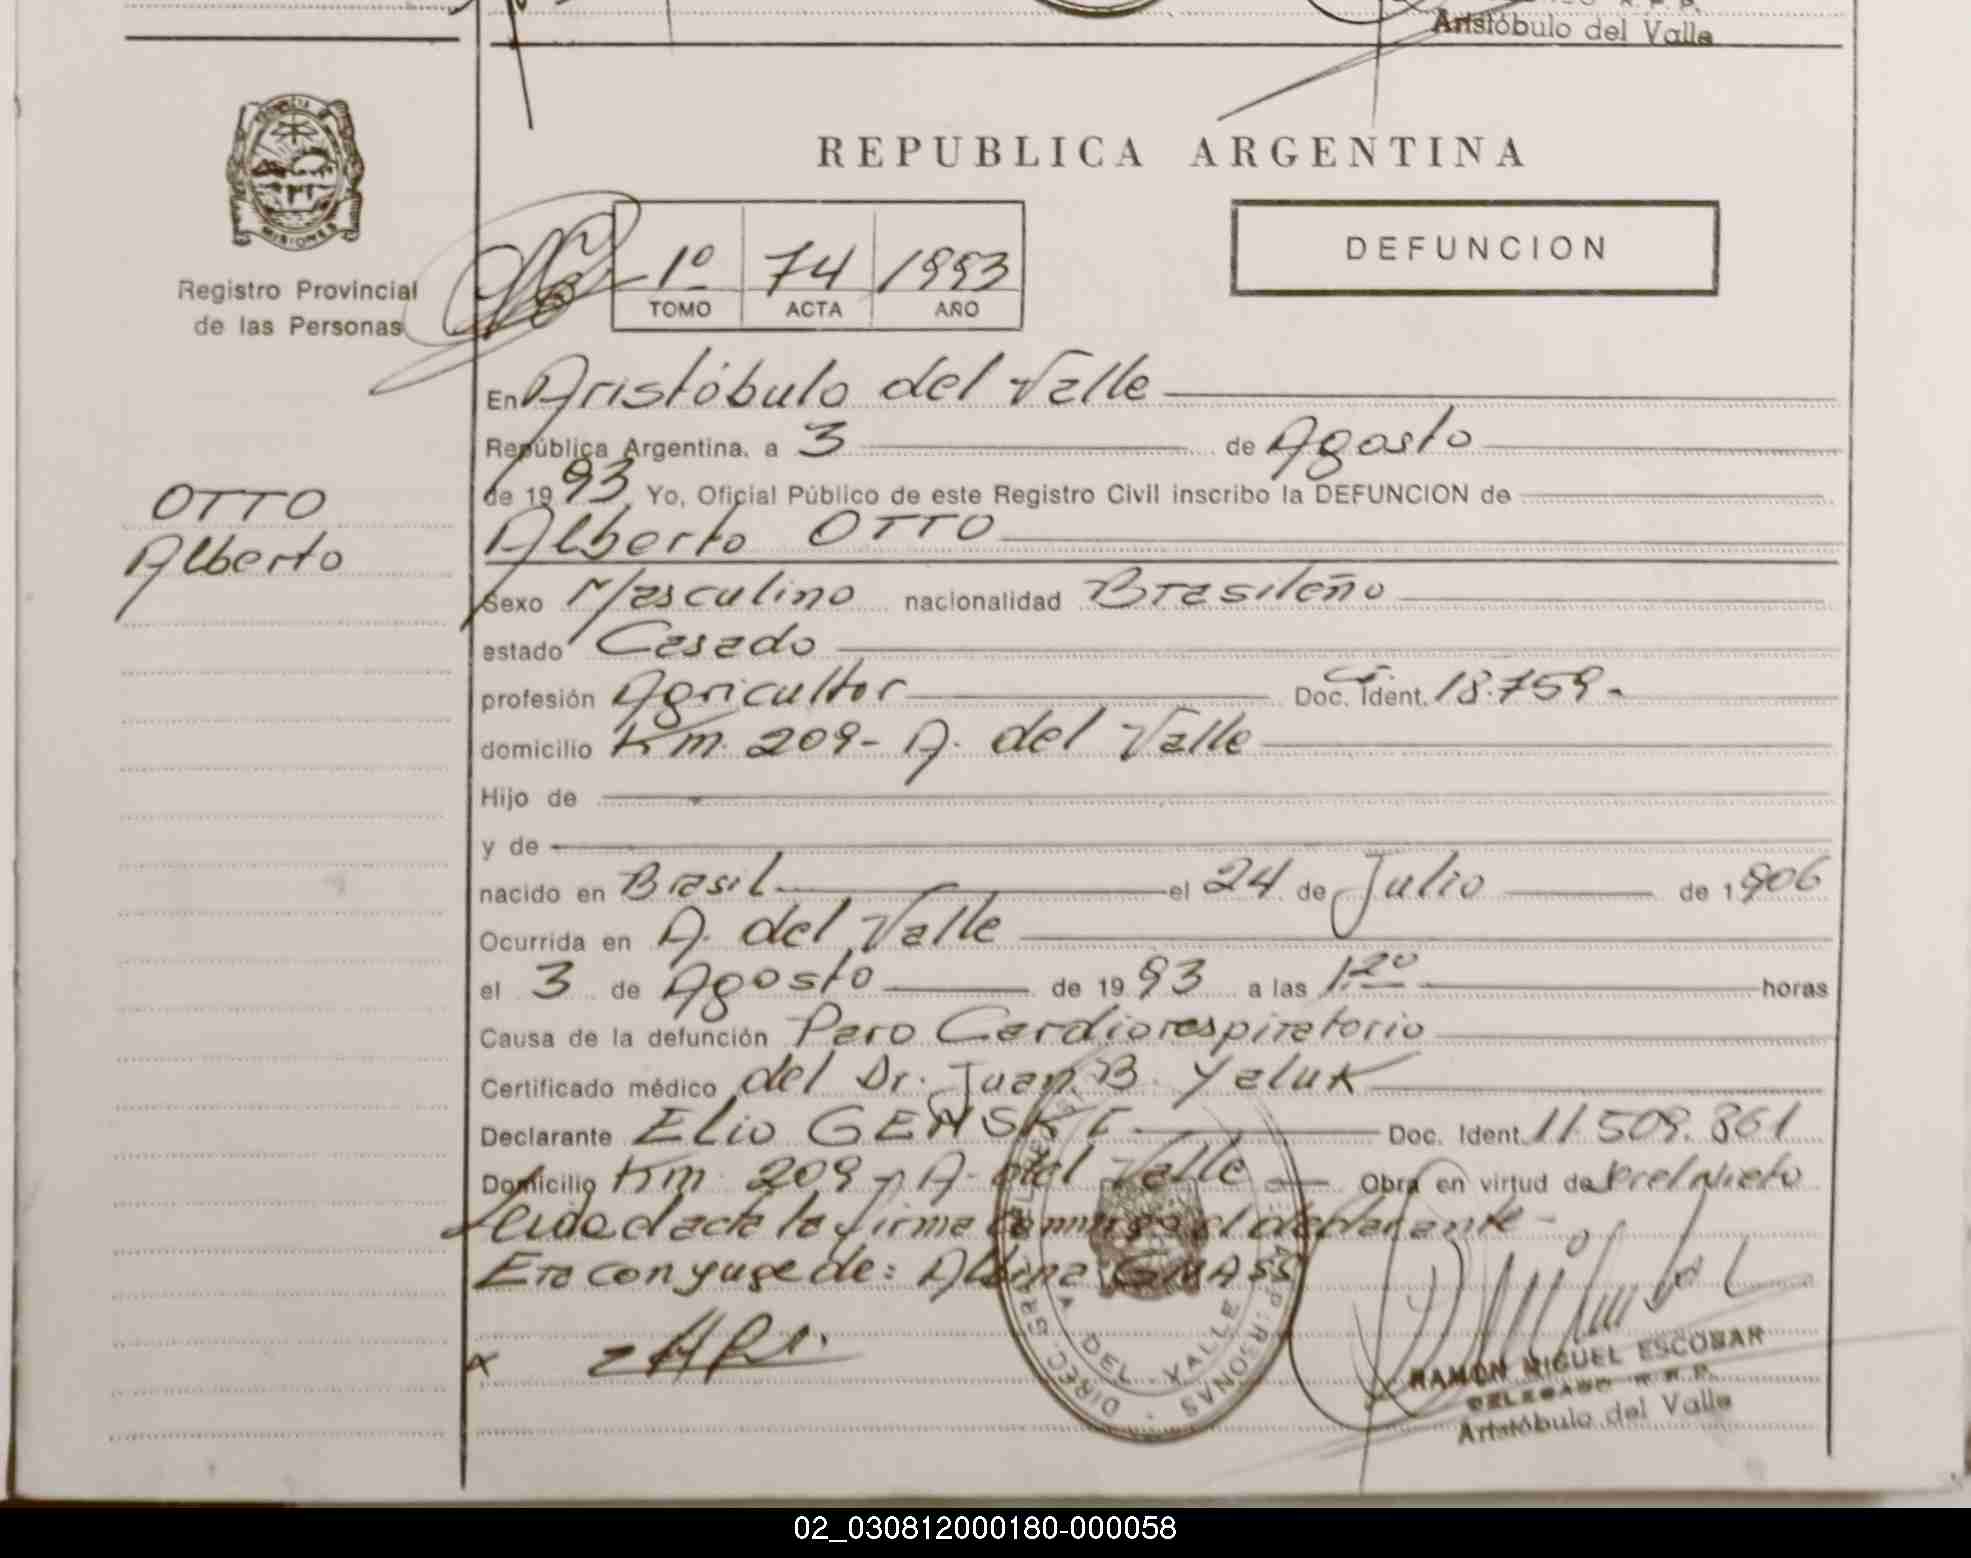 Aristóbulo del Valle
REPUBLICA ARGENTINA
MISIONES
DEFUNCION
1º 74 1993
TOMO ACTA AÑO
Registro Provincial
de las Personas
En Aristóbulo del Valle
República Argentina, a 3 de Agosto
de 1993 Yo, Oficial Público de este Registro Civil inscribo la DEFUNCION de
OTTO
Alberto
Alberto OTTO
Sexo Masculino nacionalidad Brasileño
estado Casado
profesión Agricultor Doc. Ident. C. 18.759-
domicilio Km. 209- A. del Valle
Hijo de
y de
nacido en Brasil el 24 de Julio de 1906
Ocurrida en A. del Valle
el 3 de Agosto de 1993 a las 1.20 horas
Causa de la defunción Paro Cardiorespiratorio
Certificado médico del Dr. Juan B. Yaluk
Declarante Elio GENSKE Doc. Ident. 11.509.861
Domicilio Km. 209 - A. del Valle Obra en virtud de ser el nieto
Leida el acta la firma conmigo el declarante-
Era conyuge de: Albina GNASS
x
DIREC. GRAL. PERSONAS
A. DEL VALLE
RAMON MIGUEL ESCOBAR
DELEGADO R.P.P.
Aristóbulo del Valle
02_030812000180-000058